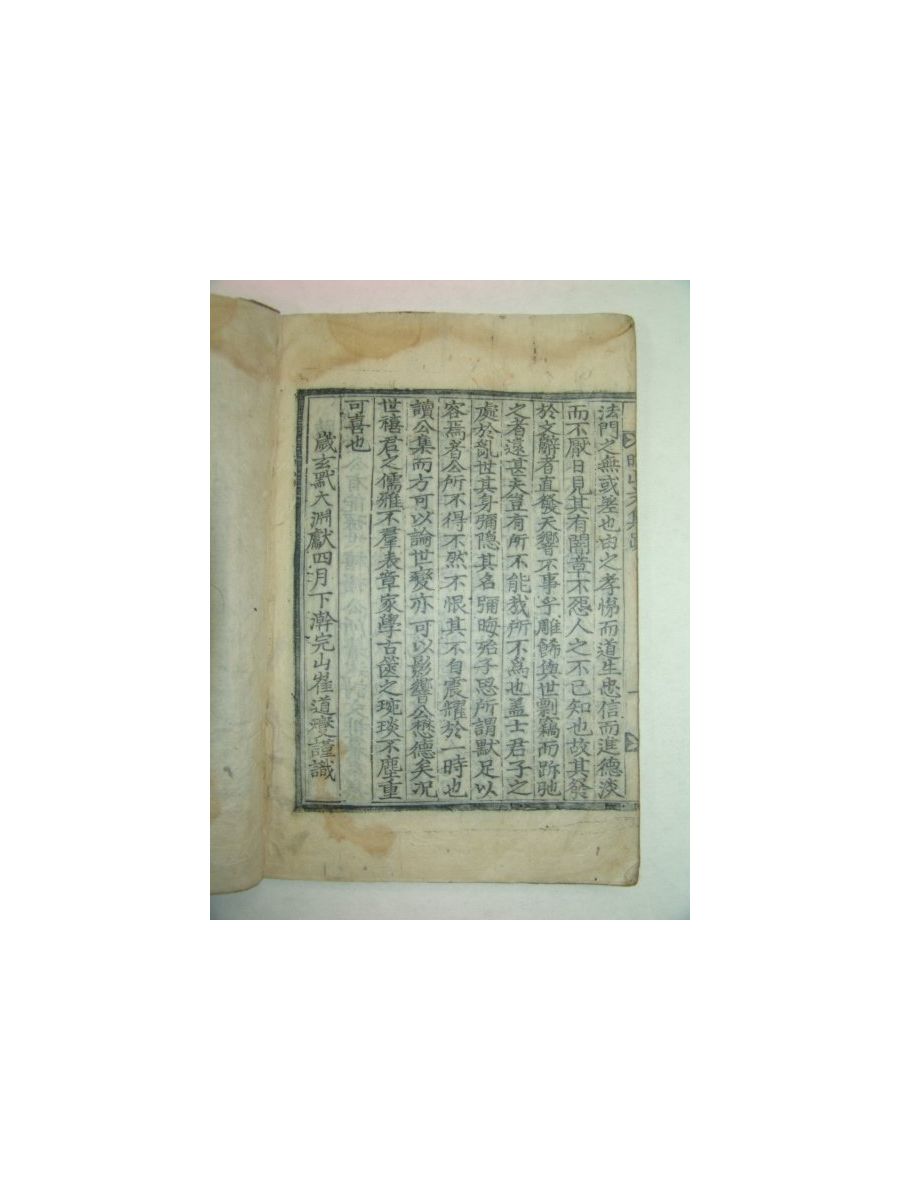 法門之無或差也由之孝悌而道生忠信而進德淡
而不厭日見其有闇章不怨人之不己知也故其發
於文辭者直發天響不事乎雕餙與世剽竊而跅弛
之者遠甚夫豈有所不能哉所不爲也盖士君子之
處於亂世其身彌隐其名彌晦殆子思所謂默足以
容焉者公所不得不然不恨其不自震耀於一時也
讀公集而方可以論世變亦可以影響公懋德矣況
世禧君之儒雅不羣表章家學古篋之琬琰不塵重
可喜也
歲玄黓大淵獻四月下澣完山崔道燮謹識
山文集